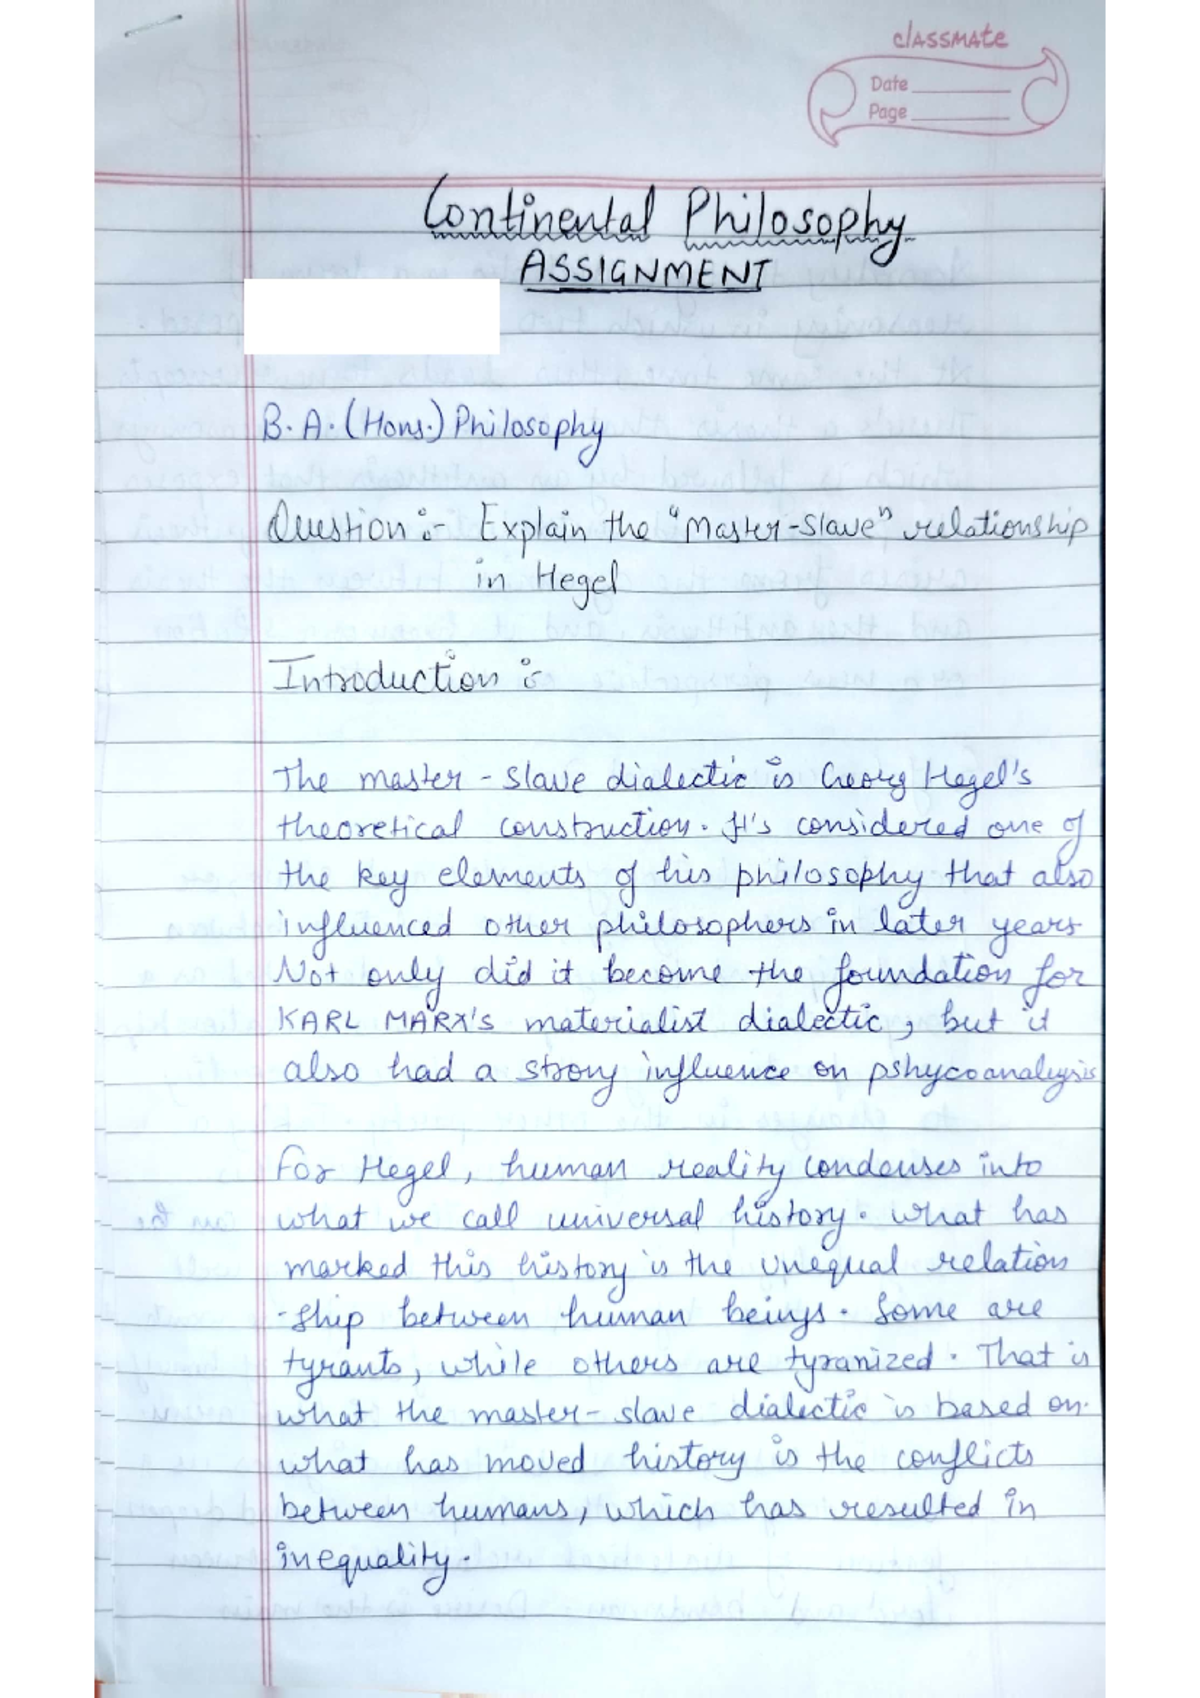 classmate
Date
Page
Continental Philosophy
ASSIGNMENT
B.A.(Hons.) Philosophy
Question :- Explain the "Master-Slave" relationship
in Hegel
Introduction :
The master - slave dialectic is Georg Hegel's
theoretical construction. It's considered one of
the key elements of his philosophy that also
influenced other philosophers in later years
Not only did it become the foundation for
KARL MARX'S materialist dialectic, but it
also had a strong influence on pshycoanalysis
For Hegel, human reality condenses into
what we call universal history. what has
marked this history is the unequal relation
-ship between human beings. Some are
tyrants, while others are tyranized. That is
what the master-slave dialectic is based on.
what has moved history is the conflicts
between humans, which has resulted in
inequality.